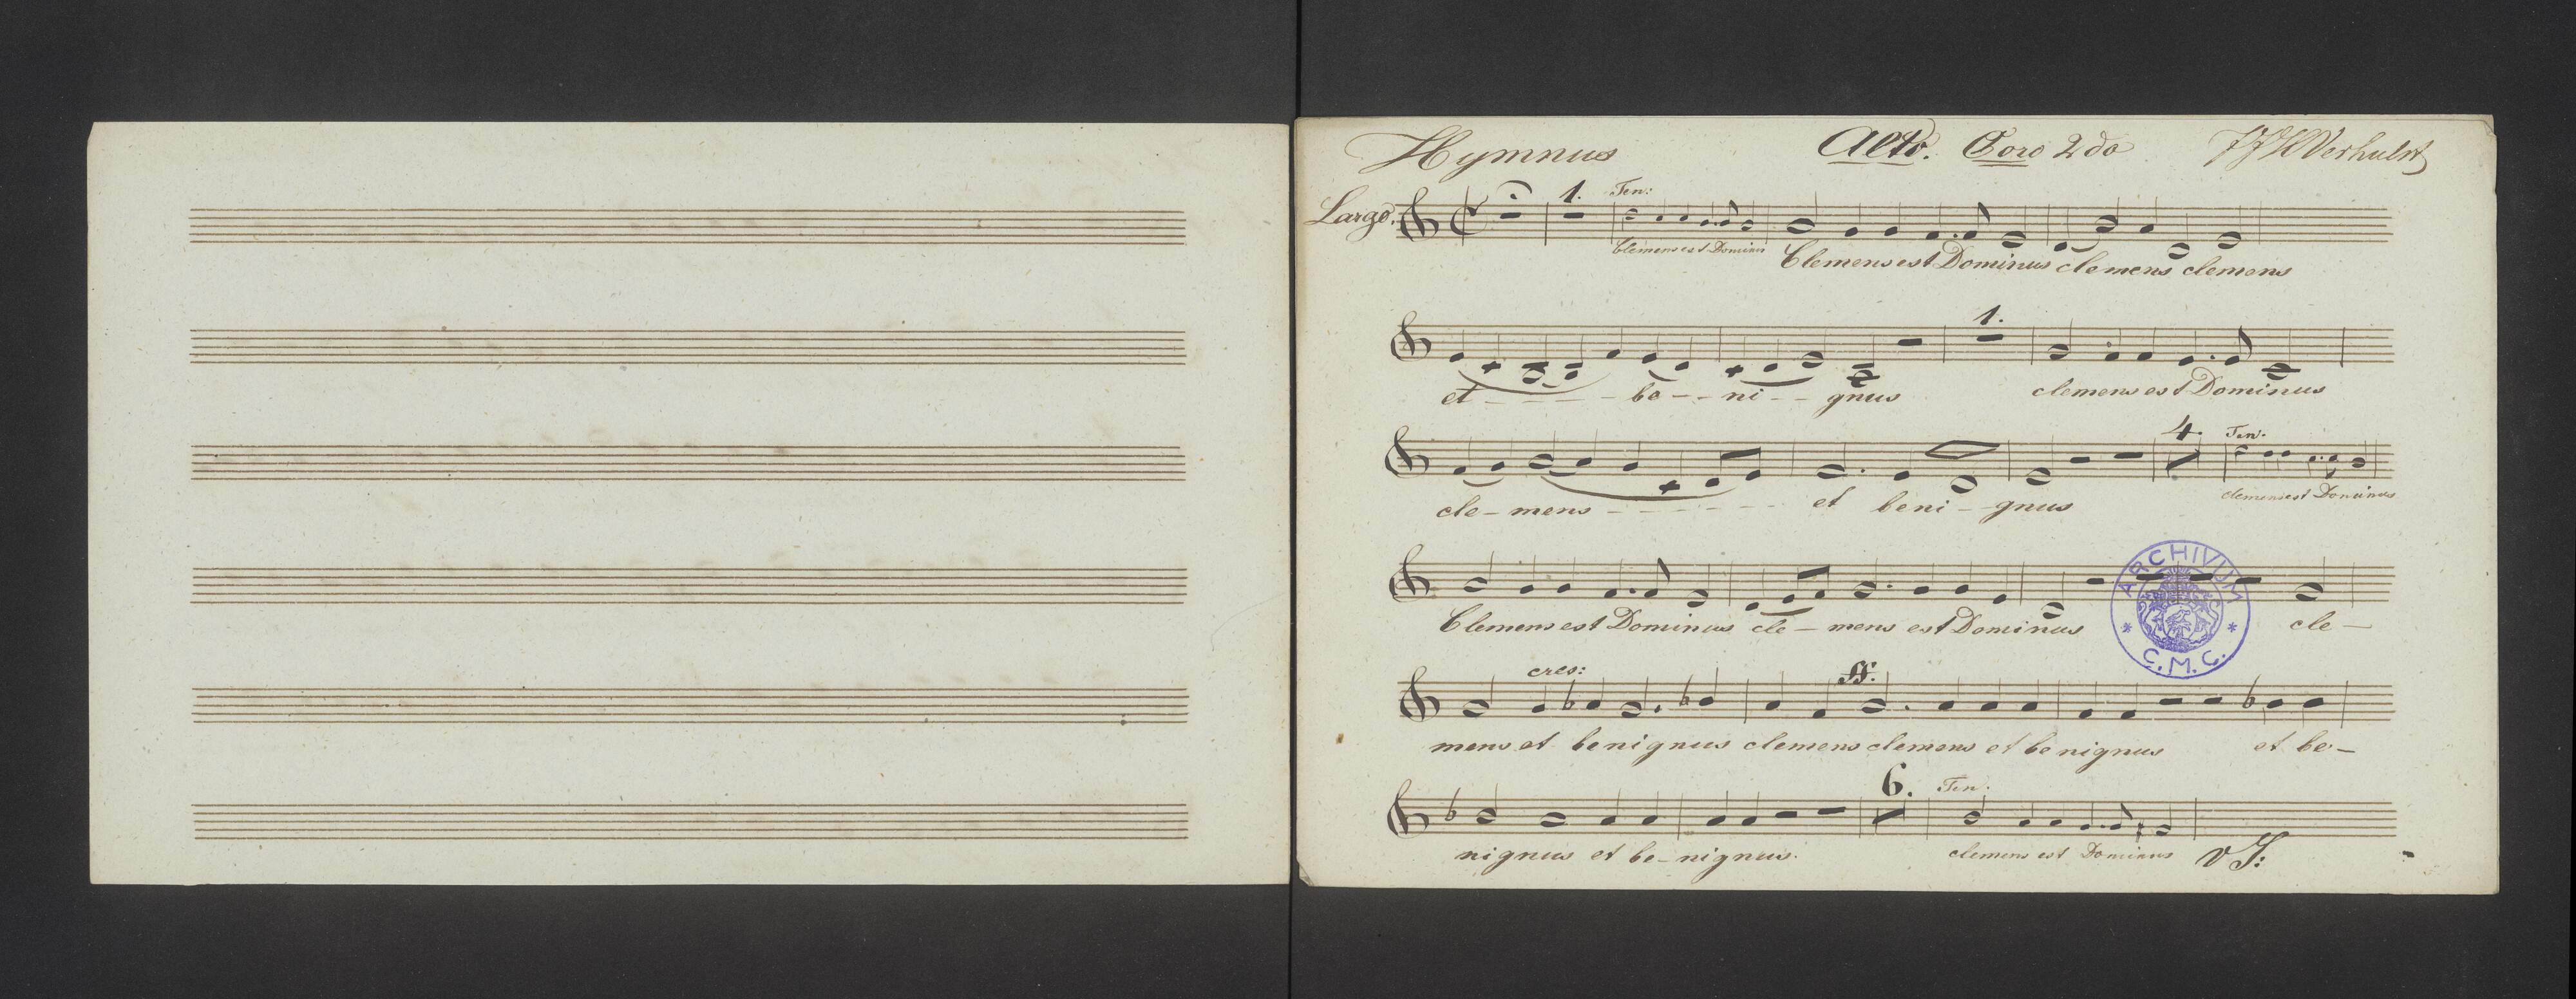 Hymnus Alto. Coro 2do JJH Verhulst
Largo. 1. Ten:
Clemens est Dominus Clemens est Dominus clemens clemens
1.
et - - - - be - - ni - - gnus clemens est Dominus
4. Ten.
cle - mens - - - - - - et beni - - gnus clemens est Dominus
Clemens est Dominus cle - mens est Dominus cle -
ARCHIVUM
* C.M.C. *
cres: ff.
mens et benignus clemens clemens et benignus et be -
6. Ten.
nignus et be - nignus. clemens est Dominus VS: